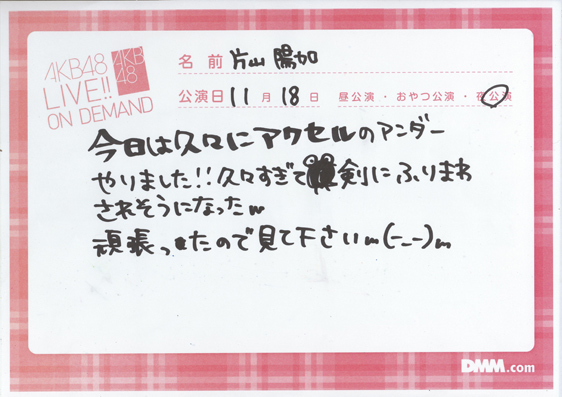 AKB48
LIVE!!
ON DEMAND
AKB
48
名前 片山 陽加
公演日 11月18日 昼公演・おやつ公演・夜公演
今日は久々にアクセルのアンダー
やりました!!久々すぎて剣にふりまわ
されそうになったw
頑張ったので見て下さいm(-_-)m
DMM.com